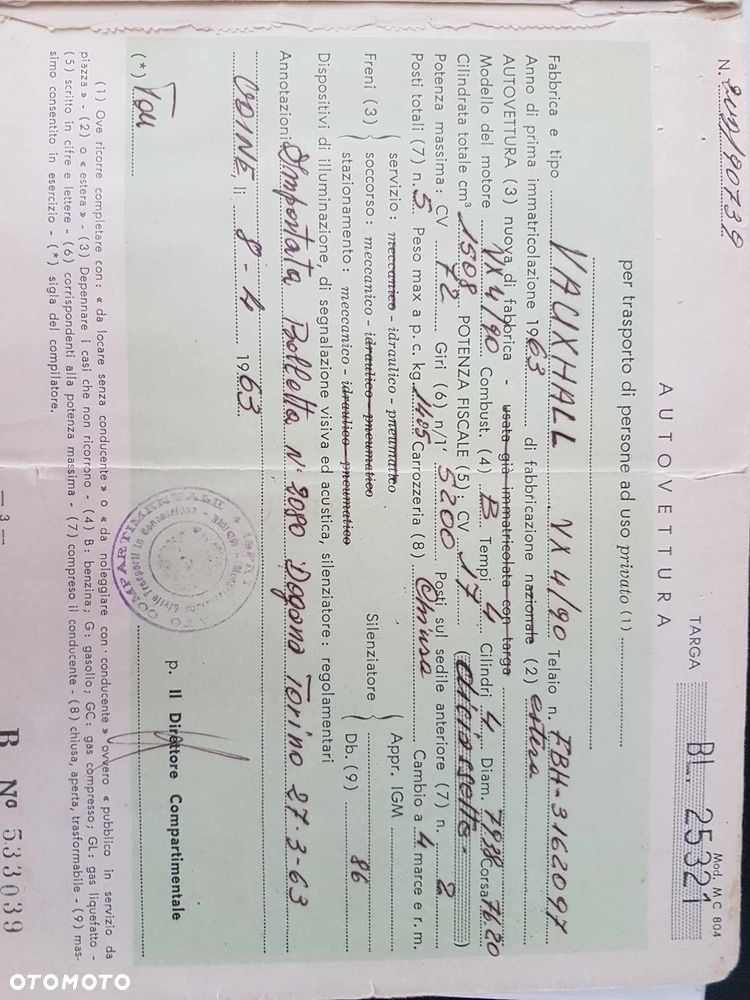 Mod. M C 804
N. 202/90739
TARGA BL. 25321
AUTOVETTURA
per trasporto di persone ad uso privato (1)
Fabbrica e tipo VAUXHALL VX 4/90 Telaio n. FBH-3162097
Anno di prima immatricolazione 1963 di fabbricazione nazionale (2) estera
AUTOVETTURA (3) nuova di fabbrica - usata già immatricolata con targa
Modello del motore VX 4/90 Combust. (4) B Tempi 4 Cilindri 4 Diam. 79,38 Corsa 76.20
Cilindrata totale cm³ 1508 POTENZA FISCALE (5): CV 17 (diciassette)
Potenza massima: CV 72 Giri (6) n/1' 5200 Posti sul sedile anteriore (7) n. 2
Posti totali (7) n. 5 Peso max a p. c. kg 1405 Carrozzeria (8) Chiusa Cambio a 4 marce e r. m.
Freni (3) servizio: meccanico - idraulico - pneumatico
soccorso: meccanico - idraulico - pneumatico
stazionamento: meccanico - idraulico - pneumatico
Silenziatore Appr. IGM
Db. (9) 86
Dispositivi di illuminazione, di segnalazione visiva ed acustica, silenziatore: regolamentari
Annotazioni Importata Bolletta N° 2080 Dogana Torino 27-3-63
UDINE, li 8-4 1963
p. Il Direttore Compartimentale
(*) Tou
(1) Ove ricorre completare con: « da locare senza conducente » o « da noleggiare con conducente » ovvero « pubblico in servizio da
piazza » - (2) o « estera » - (3) Depennare i casi che non ricorrono - (4) B: benzina; G: gasolio; GC: gas compresso; GL: gas liquefatto -
(5) scritto in cifre e lettere - (6) corrispondenti alla potenza massima - (7) compreso il conducente - (8) chiusa, aperta, trasformabile - (9) mas-
simo consentito in esercizio - (*) sigla del compilatore.
— 3 —
B N° 533039
OTOMOTO